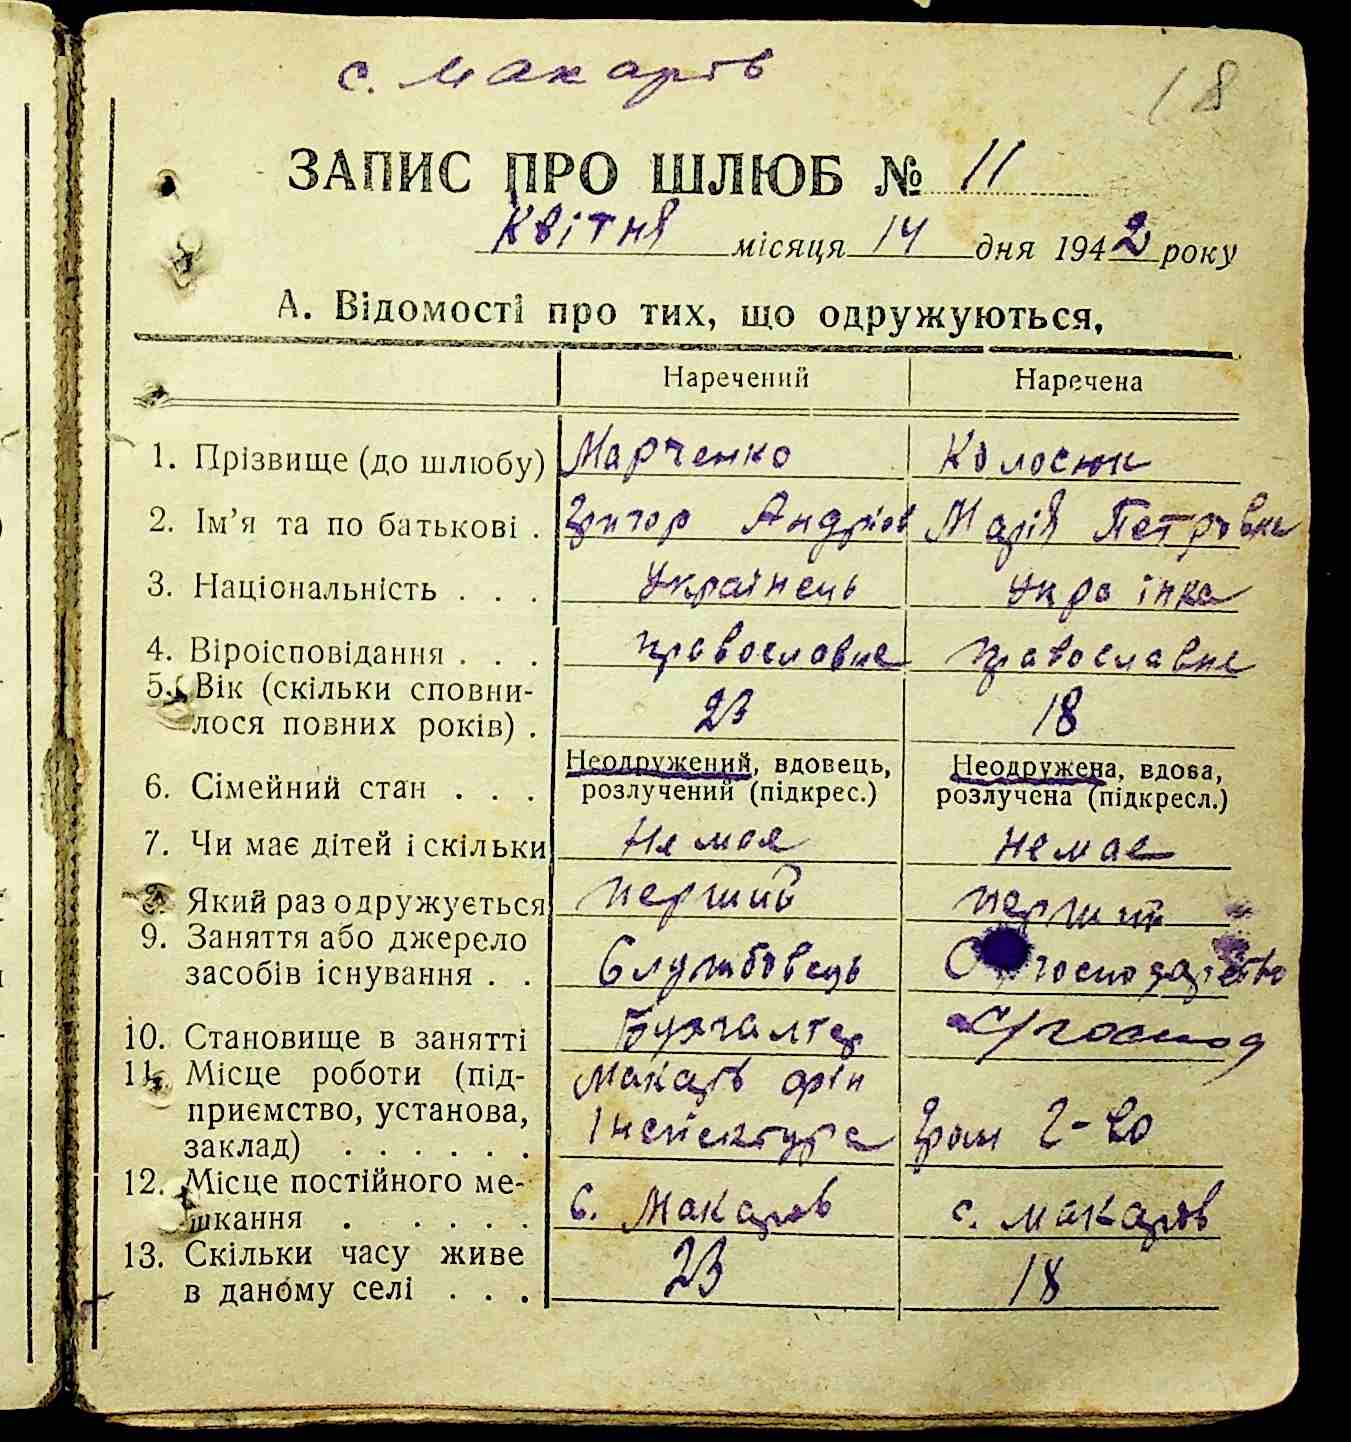 с. Макарів
18
ЗАПИС ПРО ШЛЮБ № 11
Квітня місяця 14 дня 1942 року
А. Відомості про тих, що одружуються.
Наречений Наречена
1. Прізвище (до шлюбу) Марченко Колосюк
2. Ім'я та по батькові . Григор Андріов Марія Петровна
3. Національність . . . Українець Українка
4. Віроісповідання . . . православне православне
5. Вік (скільки сповни-
лося повних років) . 23 18
Неодружений, вдовець, Неодружена, вдова,
6. Сімейний стан . . . розлучений (підкрес.) розлучена (підкресл.)
7. Чи має дітей і скільки Не має немає
8. Який раз одружується перший перший
9. Заняття або джерело
засобів існування . . Службовець С господарство
10. Становище в занятті Бухгалтер С/господ
11. Місце роботи (під- Макарів
приємство, установа, Інспектура Гром г-во
заклад) . . . . . .
12. Місце постійного ме-
шкання . . . . . с. Макаров с. Макаров
13. Скільки часу живе
в даному селі . . . 23 18